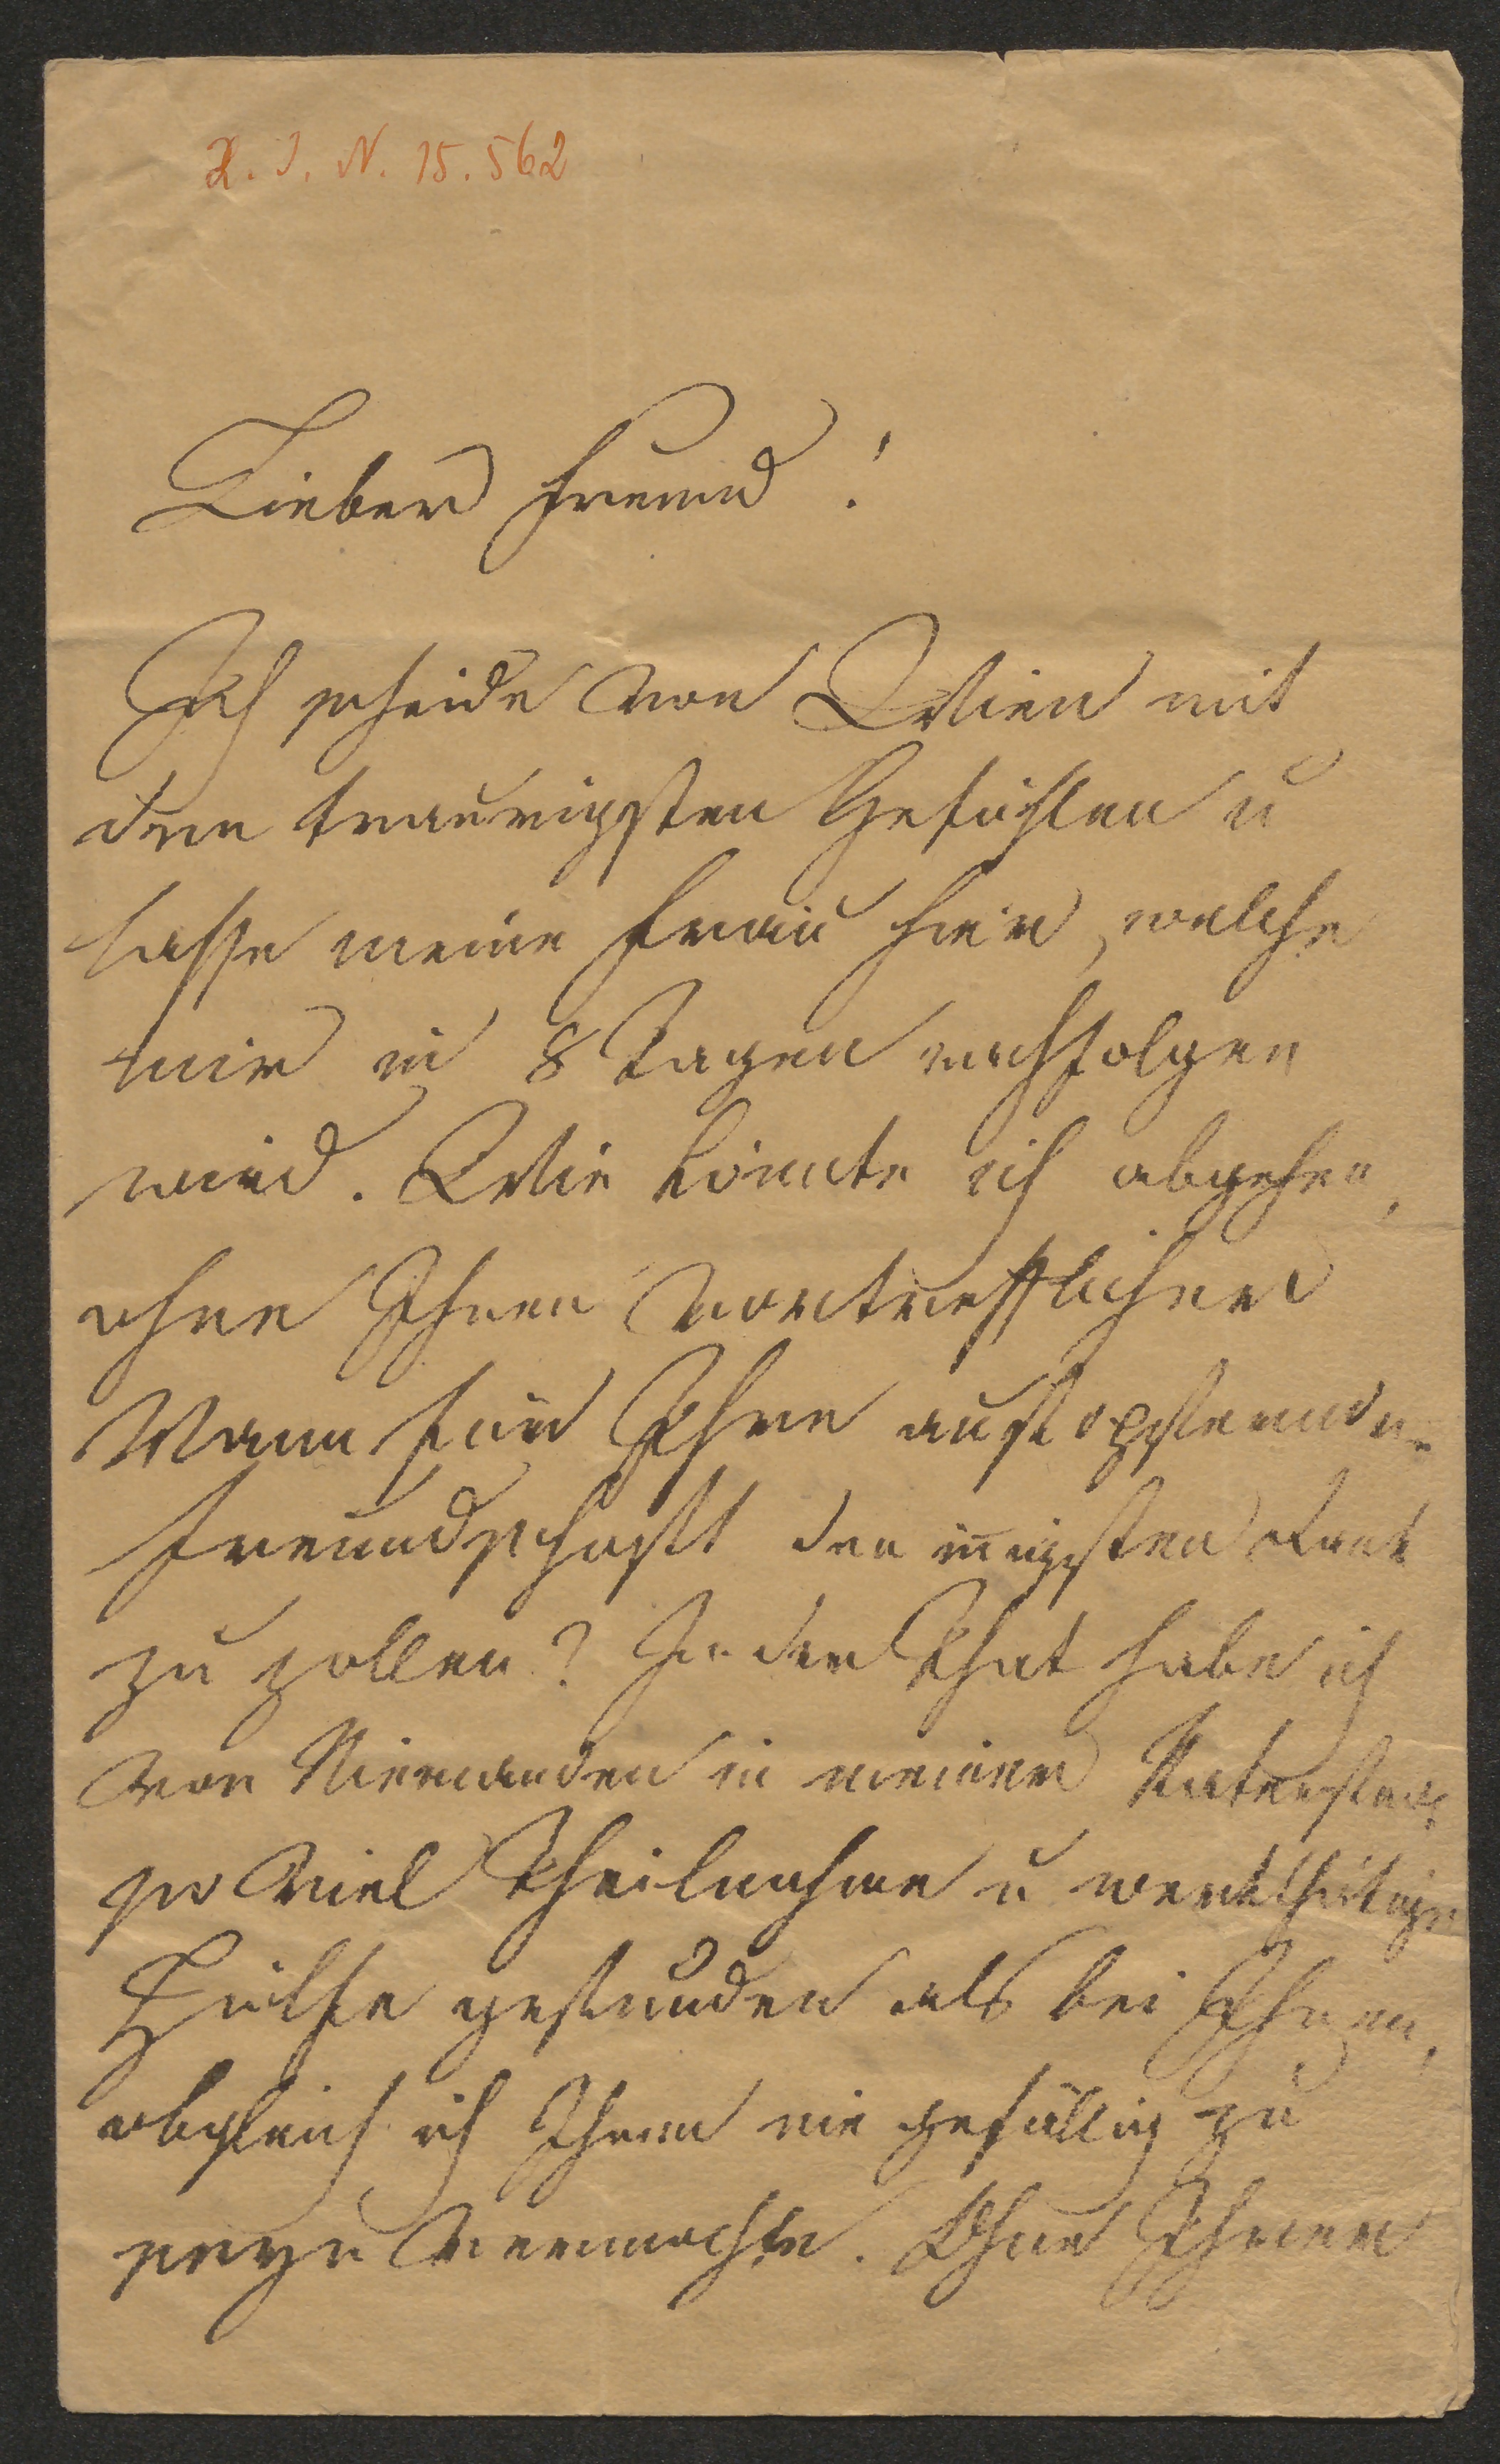 H. I. N. 15.562
Lieber Freund!
Ich scheide von Wien mit
den traurigsten Gefühlen u
lasse meine Frau hier, welche
mir in 8 Tagen nachfolgen
wird. Wie könnte ich abgehen,
ohne Ihnen vortrefflicher
Mann für Ihre aufopfernde
Freundschaft den innigsten Dank
zu zollen? In der That habe ich
von Niemanden in meiner Vaterstadt
so viel Theilnahme u werkthätige
Hülfe gefunden als bei Ihnen,
obgleich ich Ihnen nie gefällig zu
seyn vermochte. Ohne Ihren